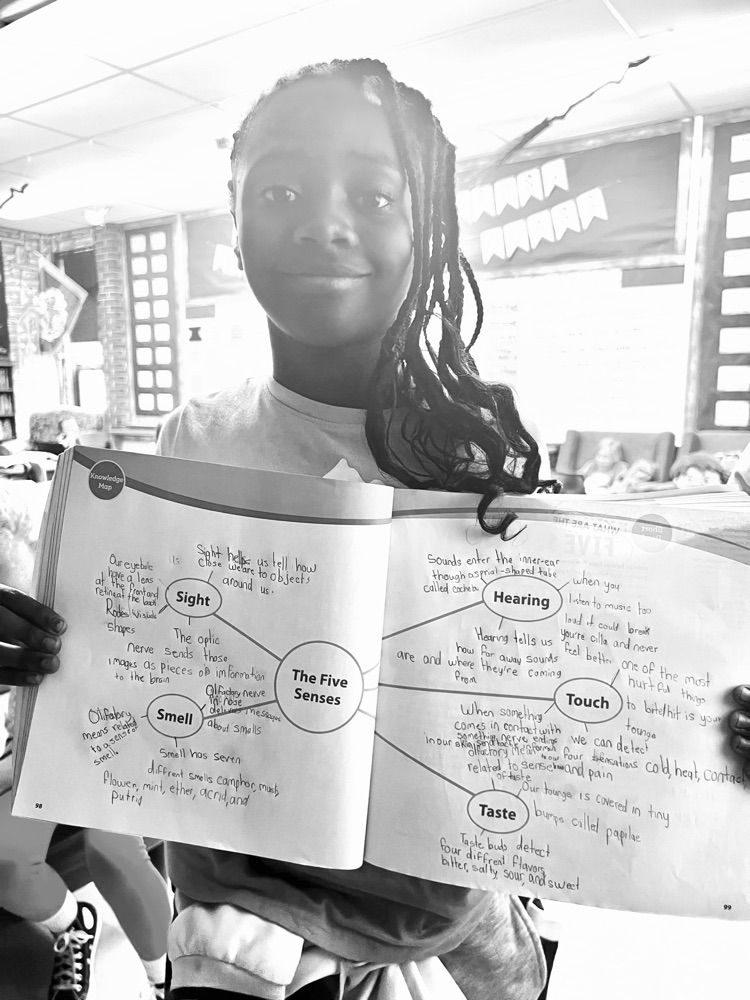 Knowledge
Map
Our eyeballs
have a lens
at the front and
retina at the back
Rodes
shapes
is
Sight helps us tell how
close we are to objects
around us.
Sight
The optic
nerve sends those
images as pieces of imformation
to the brain
The Five
Senses
Olfactory nerve
in nose
delivers messages
about smells
Smell
Olfabory
means related
to a sense of
smell.
Smell has seven
diffrent smells camphor, musk,
flower, mint, ether, acrid, and
putrid
98
WHAT ARE THE
FIVE
Sounds enter the inner-ear
though a sprial-shaped tube
called cochela
Hearing
when you
listen to music too
loud it could break
you're cilla and never
feel better
Hearing tells us
how far away sounds
are and where they're coming
from
Touch
one of the most
hurtful things
to bite/hit is your
tounge
When something
comes in contact with
something, nerve endings
in our skin send
olfactory
related to sense
of taste
we can detect
four sensations cold, heat, contact
and pain
Taste
Our tounge is covered in tiny
bumps called papilae
Taste buds detect
four diffrent flavors
bitter, salty, sour, and sweet
99